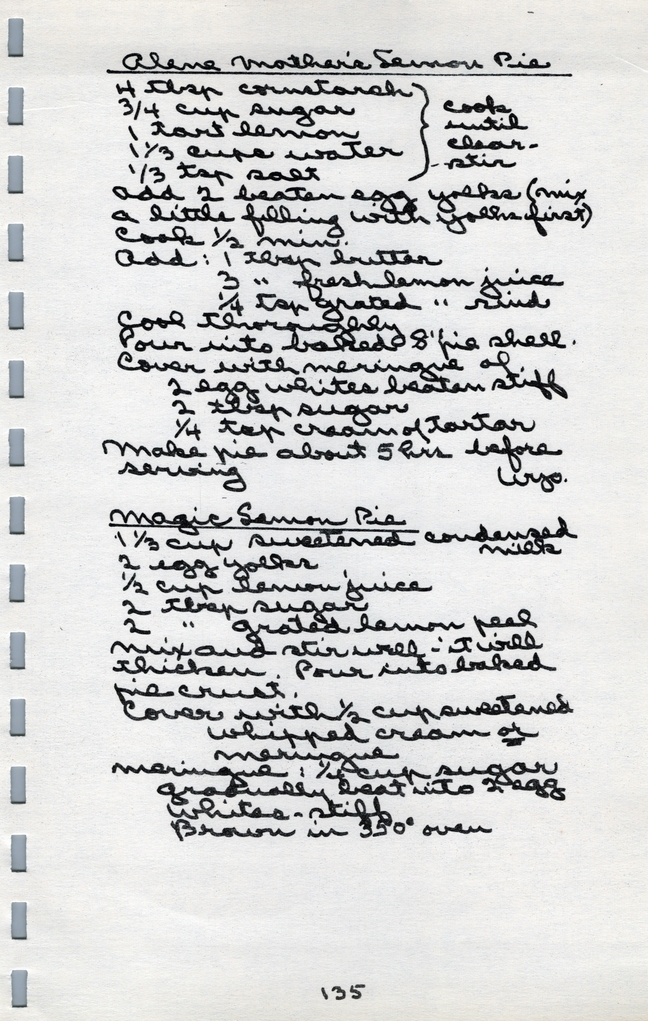 Alene Mother's Lemon Pie
4 tbsp cornstarch
3/4 cup sugar
1 tart lemon
1 1/3 cups water
1/3 tsp salt
cook
until
clear-
stir
add 2 beaten egg yolks (mix
a little filling with yolks first)
Cook 1/2 min.
Add: 1 tbsp butter
3 " fresh lemon juice
1/4 tsp grated " rind
Cool thoroughly
Pour into baked 8" pie shell.
Cover with meringue of
2 egg whites beaten stiff
2 tbsp sugar
1/4 tsp cream of tartar
Make pie about 5 hrs before
serving
Magic Lemon Pie
1 1/3 cup sweetened condensed
milk
2 egg yolks
1/2 cup lemon juice
2 tbsp sugar
2 " grated lemon peel
mix and stir well - it will
thicken. Pour into baked
pie crust.
Cover with 1/2 cup sweetened
whipped cream or
meringue
meringue: 1/4 cup sugar
gradually beat into 2 egg
whites - stiff
Brown in 350° oven
135